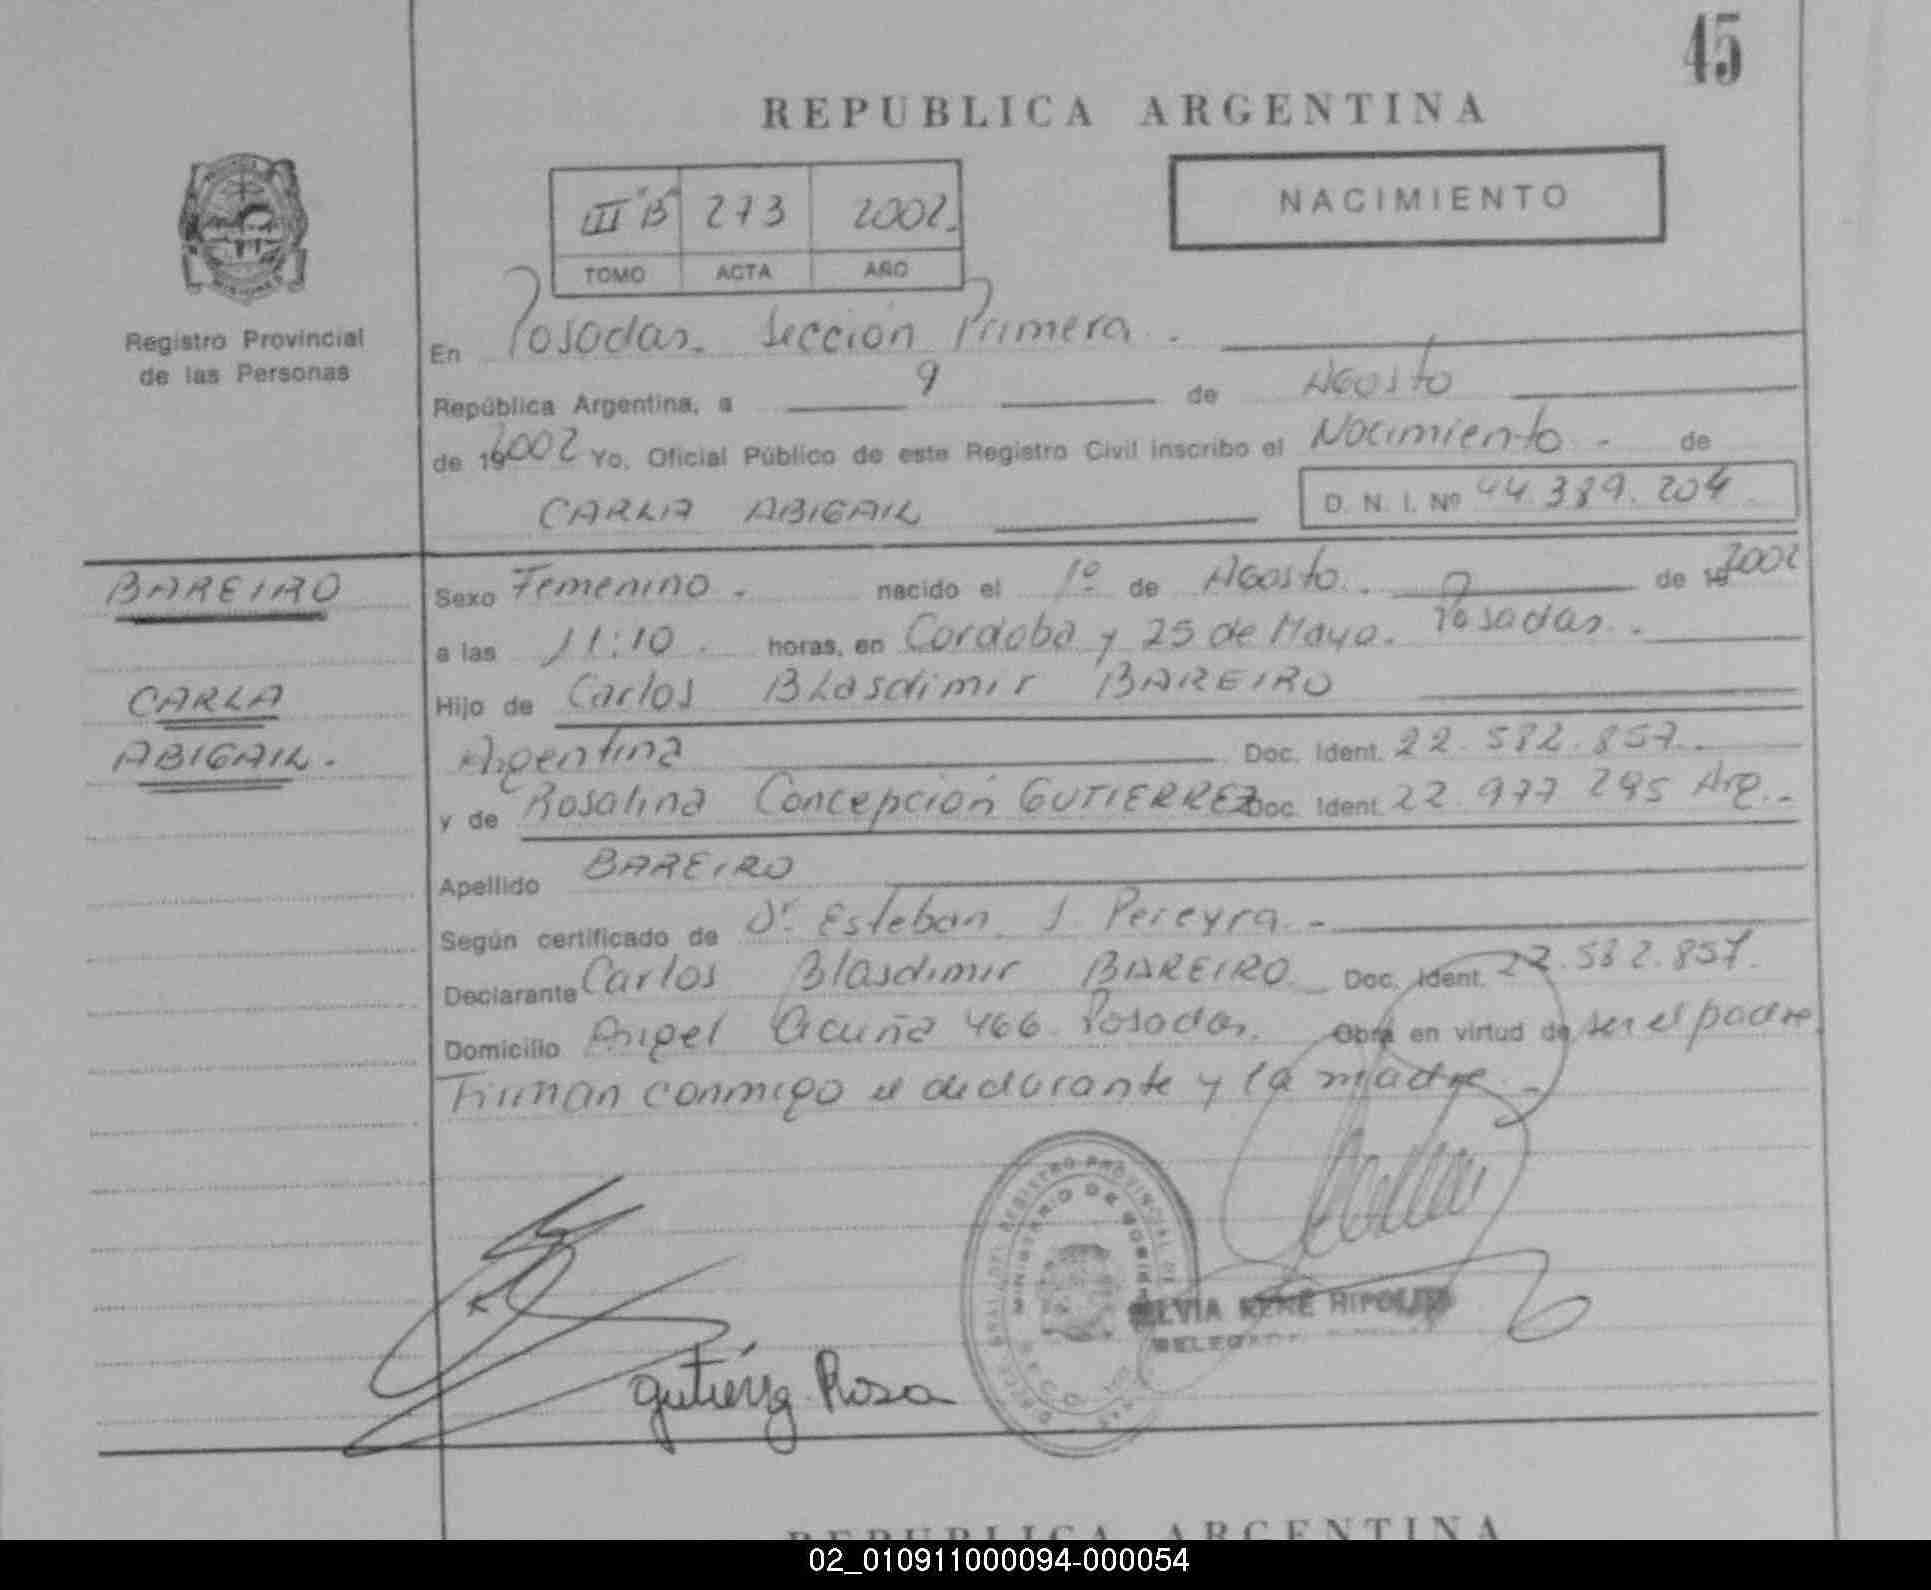 45
REPUBLICA ARGENTINA
NACIMIENTO
III "B" 273 2002.
TOMO ACTA AÑO
Registro Provincial
de las Personas
En Posadas. Sección Primera.
República Argentina, a 9 de Agosto
de 2002 Yo, Oficial Público de este Registro Civil inscribo el Nacimiento. de
CARLA ABIGAIL D. N. I. Nº 44.389.204.
BAREIRO
CARLA
ABIGAIL.
Sexo Femenino. nacido el 1º de Agosto. de 2002
a las 11:10. horas, en Cordoba y 25 de Mayo. Posadas.
Hijo de Carlos Blasdimir BAREIRO
Argentina Doc. Ident. 22.582.857.
y de Rosalina Concepción GUTIERREZ Doc. Ident. 22.977 295 Arg.-
Apellido BAREIRO
Según certificado de Dr. Esteban J. Pereyra.-
Declarante Carlos Blasdimir BAREIRO. Doc. Ident. 22.582.857.
Domicilio Angel Acuña 466 Posadas. Obra en virtud de ser el padre
Firman conmigo el declarante y la madre.-
REGISTRO PROVINCIAL DE
MINISTERIO DE GOBIERNO
SILVIA RENÉ HIPOLITO
Gutiérrez Rosa
REPUBLICA ARGENTINA
02_010911000094-000054